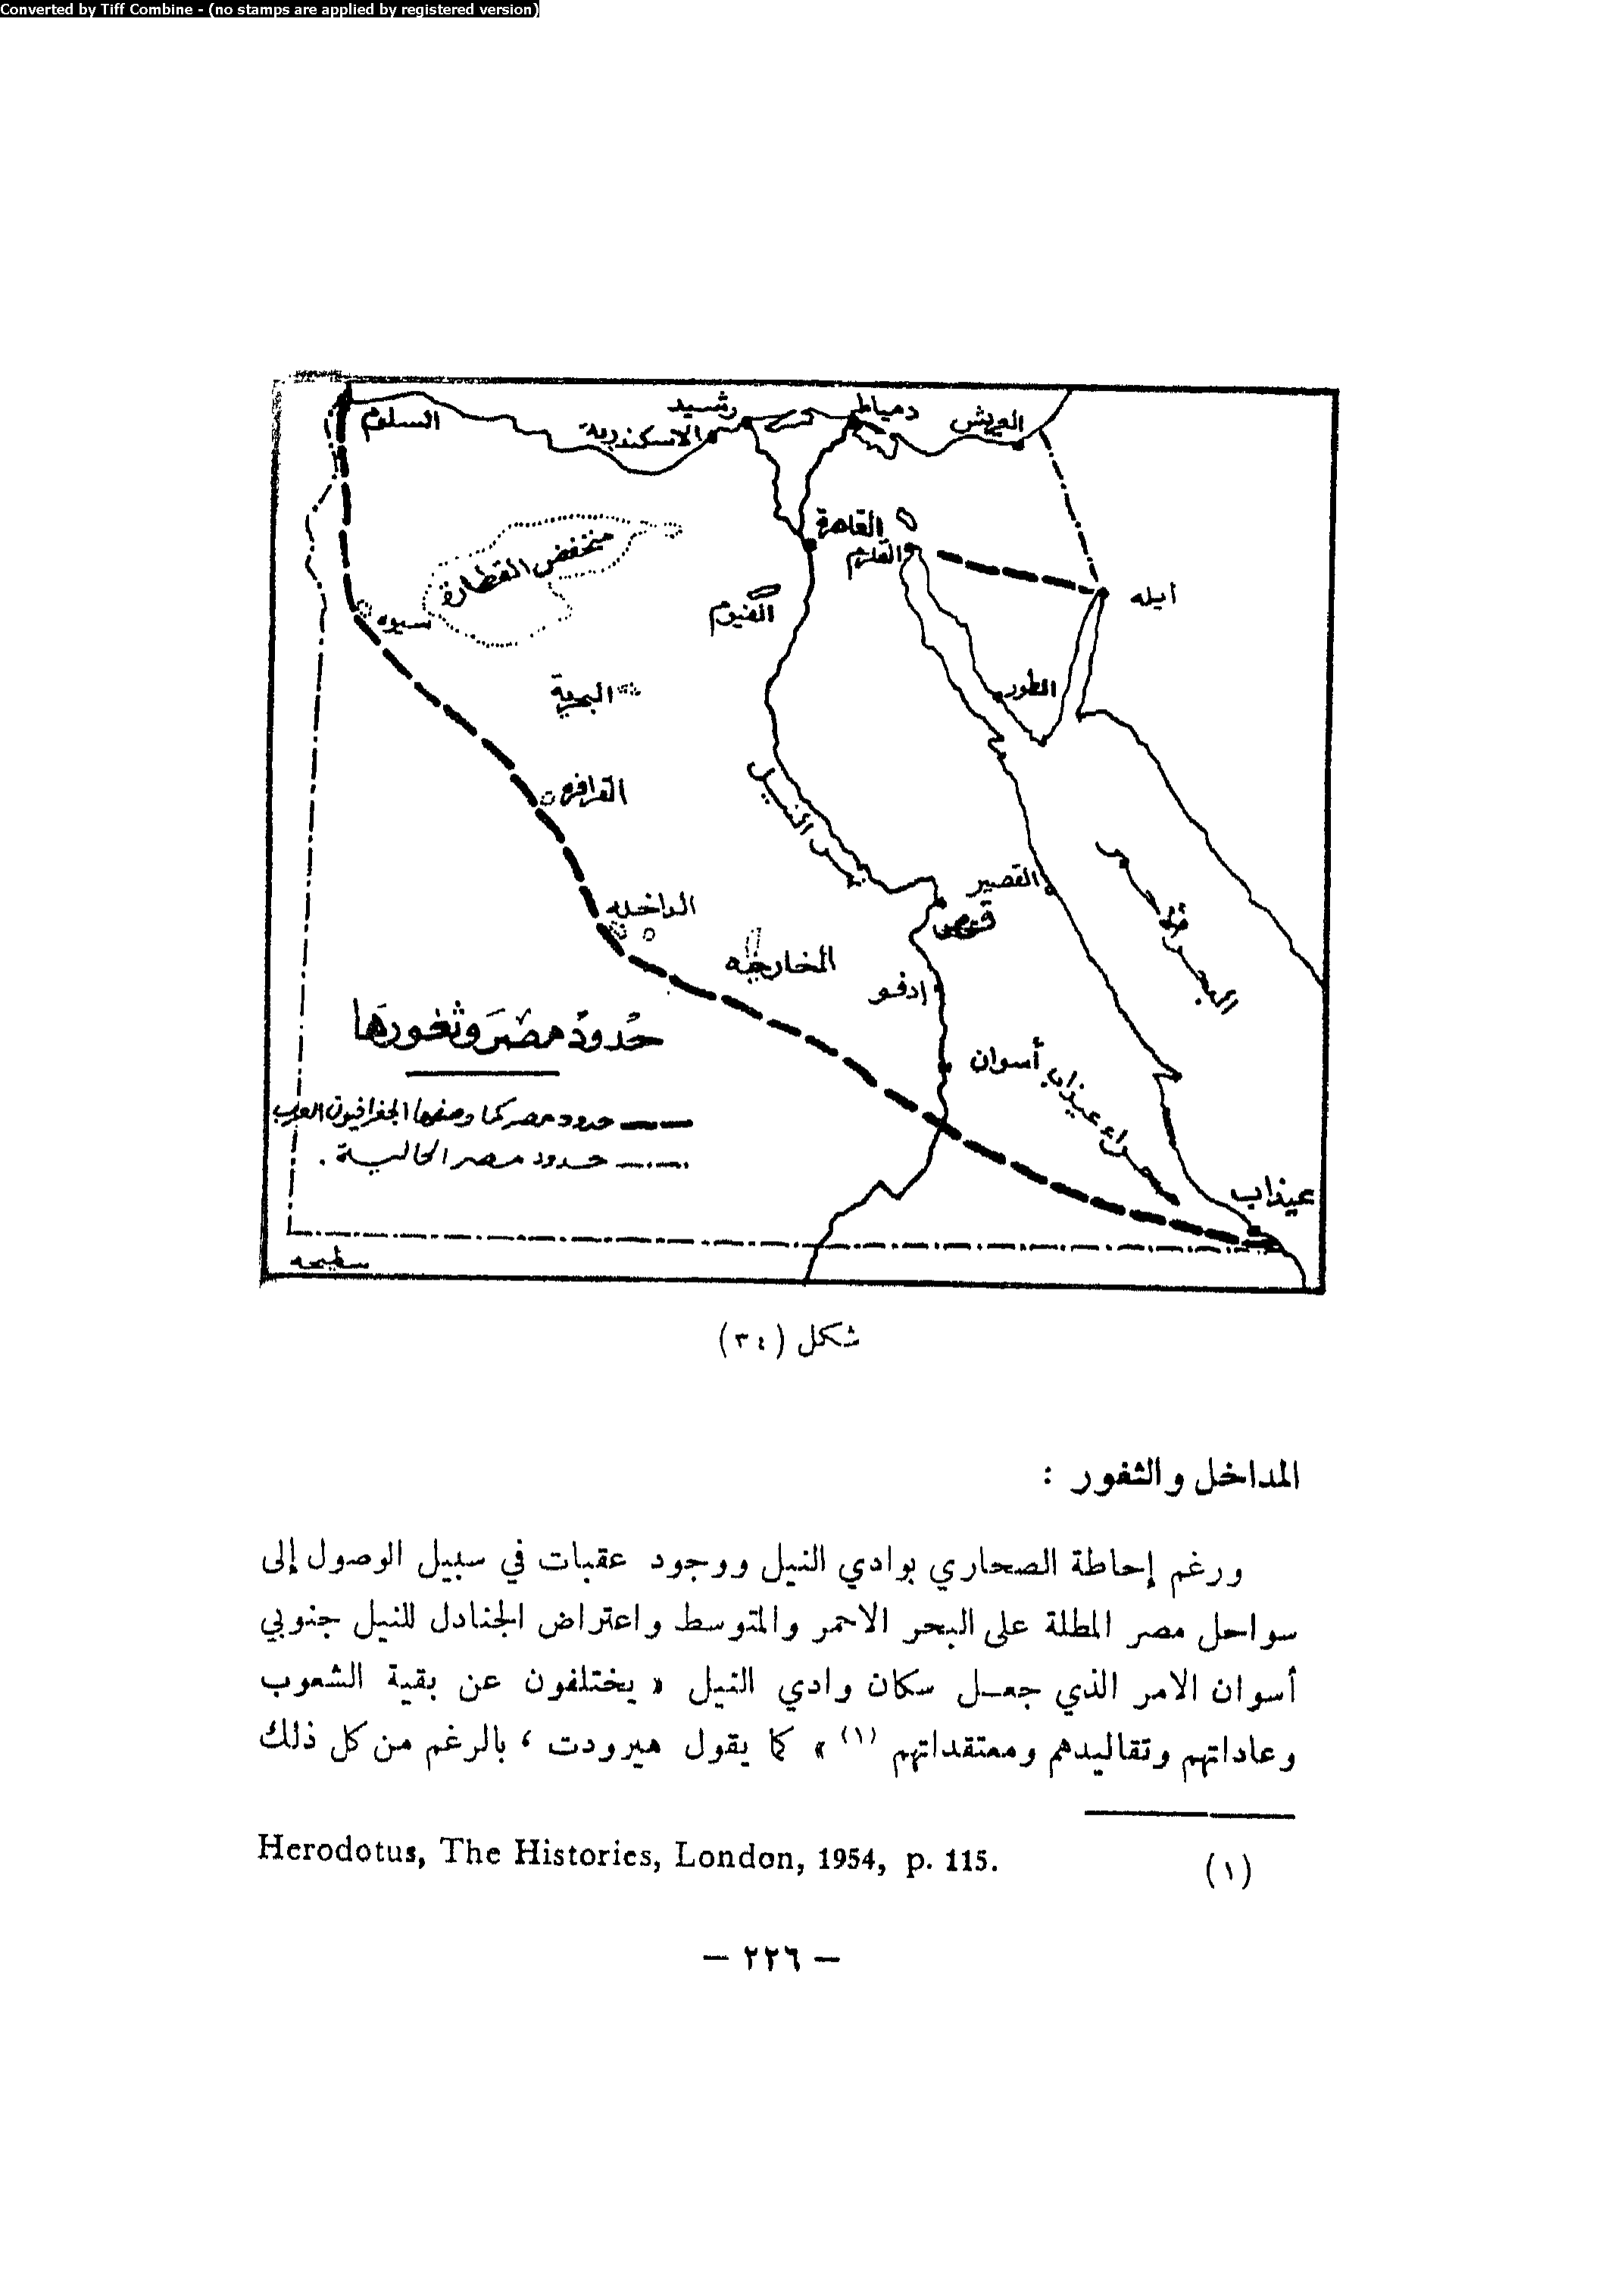 Converted by Tiff Combine - (no stamps are applied by registered version)
السلوم
رشيد
الاسكندرية
دمياط
العريش
القاهرة
القلزم
أيله
منخفض القطارة
سيوه
الفيوم
الطور
البحرية
الفرافره
نهر النيل
القصير
قوص
البحر الأحمر
الداخله
الخارجيه
إدفو
أسوان
صحراء عيذاب
عيذاب
حدود مصر وثغورها
حدود مصر كما وصفها الجغرافيون العرب
حدود مصر الحالية .
شكل (٣٤)
المداخل والثغور :
ورغم إحاطة الصحاري بوادي النيل ووجود عقبات في سبيل الوصول إلى
سواحل مصر المطلة على البحر الاحمر والمتوسط واعتراض الجنادل للنيل جنوبي
أسوان الامر الذي جعل سكان وادي النيل « يختلفون عن بقية الشعوب
وعاداتهم وتقاليدهم ومعتقداتهم (١) » كما يقول هيرودت ، بالرغم من كل ذلك
(١) Herodotus, The Histories, London, 1954, p. 115.
– ٢٢٦ –